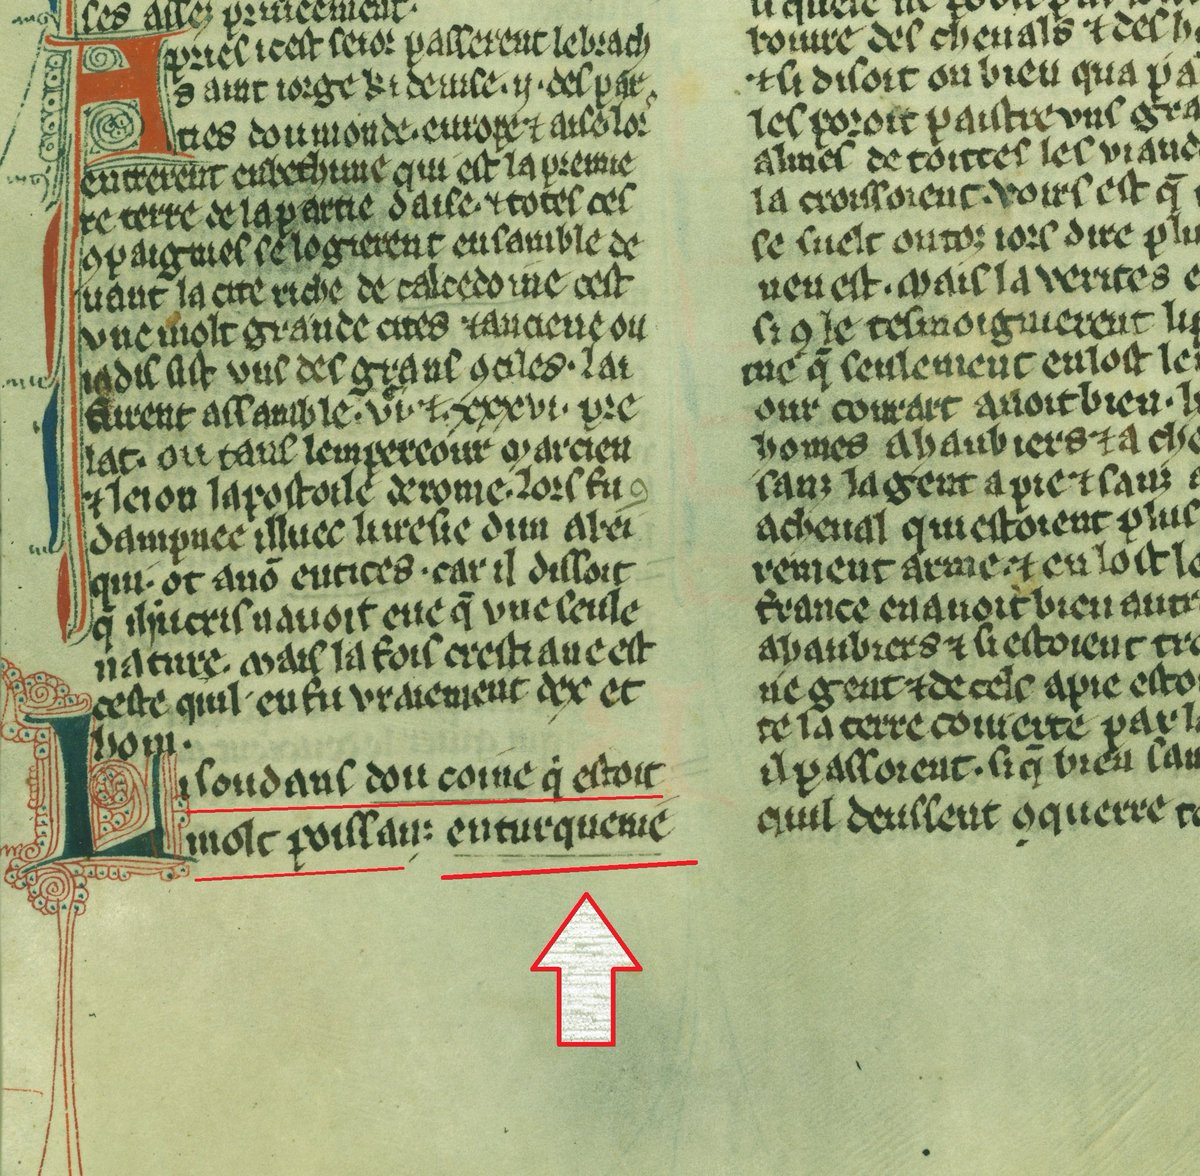 ses assez priueement.
Apries icest seior passerent le brach
saint iorge ki deuise .ij. des par
ties dou monde. europe ⁊ aise lor
entrerent en bethinie qui est la premie
re terre de la partie daise. ⁊ totes ces
ꝯpaignies se logierent ensamble de
uant la cite riche de calcedoine cest
vne molt grande cites ⁊ anciene ou
iadis fist vns des grans ꝯciles. lai
furent assamble .vi. ⁊ xxxvi. pre
lat. ou tans lempereour marcien
⁊ leion lapostoile de rome. lors fu
dampnee illuec liresie dun abei
qui. ot anō eutices. car il dissoit
q̄ ihūcris nauoit eue q̄ vne seule
nature. mais la fois crestiane est
ceste quil en fu vraiement dex et
hom.
Li soudans dou coine q̇ estoit
molt poissanz en turquenie
roiure des cheuals ⁊ des
⁊ si disoit on bien qua pa
les pooit paistre vns gra
almes de toittes les viand
la croissoient. voirs est q̄
se suelt on toz iors dire plu
neu est. mais la verites
si ꝯ le tesmoignierent li
me q̄ seulement en lost le
our couuart auoit bien.
homes a haubiers ⁊ a che
sanz la gent a pie ⁊ sanz
a cheual qui estoient plus
rement arme. ⁊ en lost le
france en auoit bien autr
a haubiers ⁊ si estoient tre
ne gent ⁊ de cels a pie esto
te la terre couuerte par la
il passoient. si q̄ bien san
quil deussent ꝯquerre to